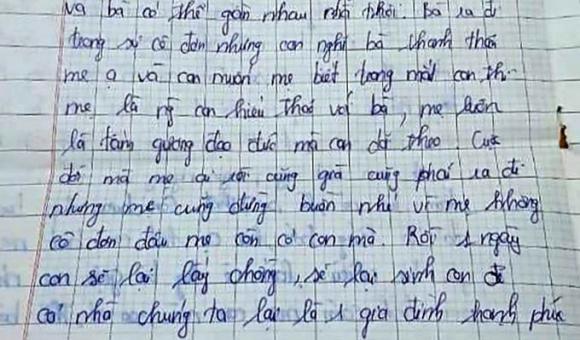 và bà có thể gần nhau nhất thôi. Bà ra đi
trong sự cô đơn nhưng con nghĩ bà thanh thản
mẹ ạ và con muốn mẹ biết trong mắt con thì
mẹ là ng con hiếu thảo với bà, mẹ luôn
là tấm gương đạo đức mà con dõi theo. Cuộc
đời mà mẹ ai rồi cũng già cũng phải ra đi
nhưng mẹ cũng đừng buồn nhé vì mẹ không
cô đơn đâu mẹ còn có con mà. Rồi 1 ngày
con sẽ lại lấy chồng, sẽ lại sinh con để
cả nhà chúng ta lại là 1 gia đình hạnh phúc